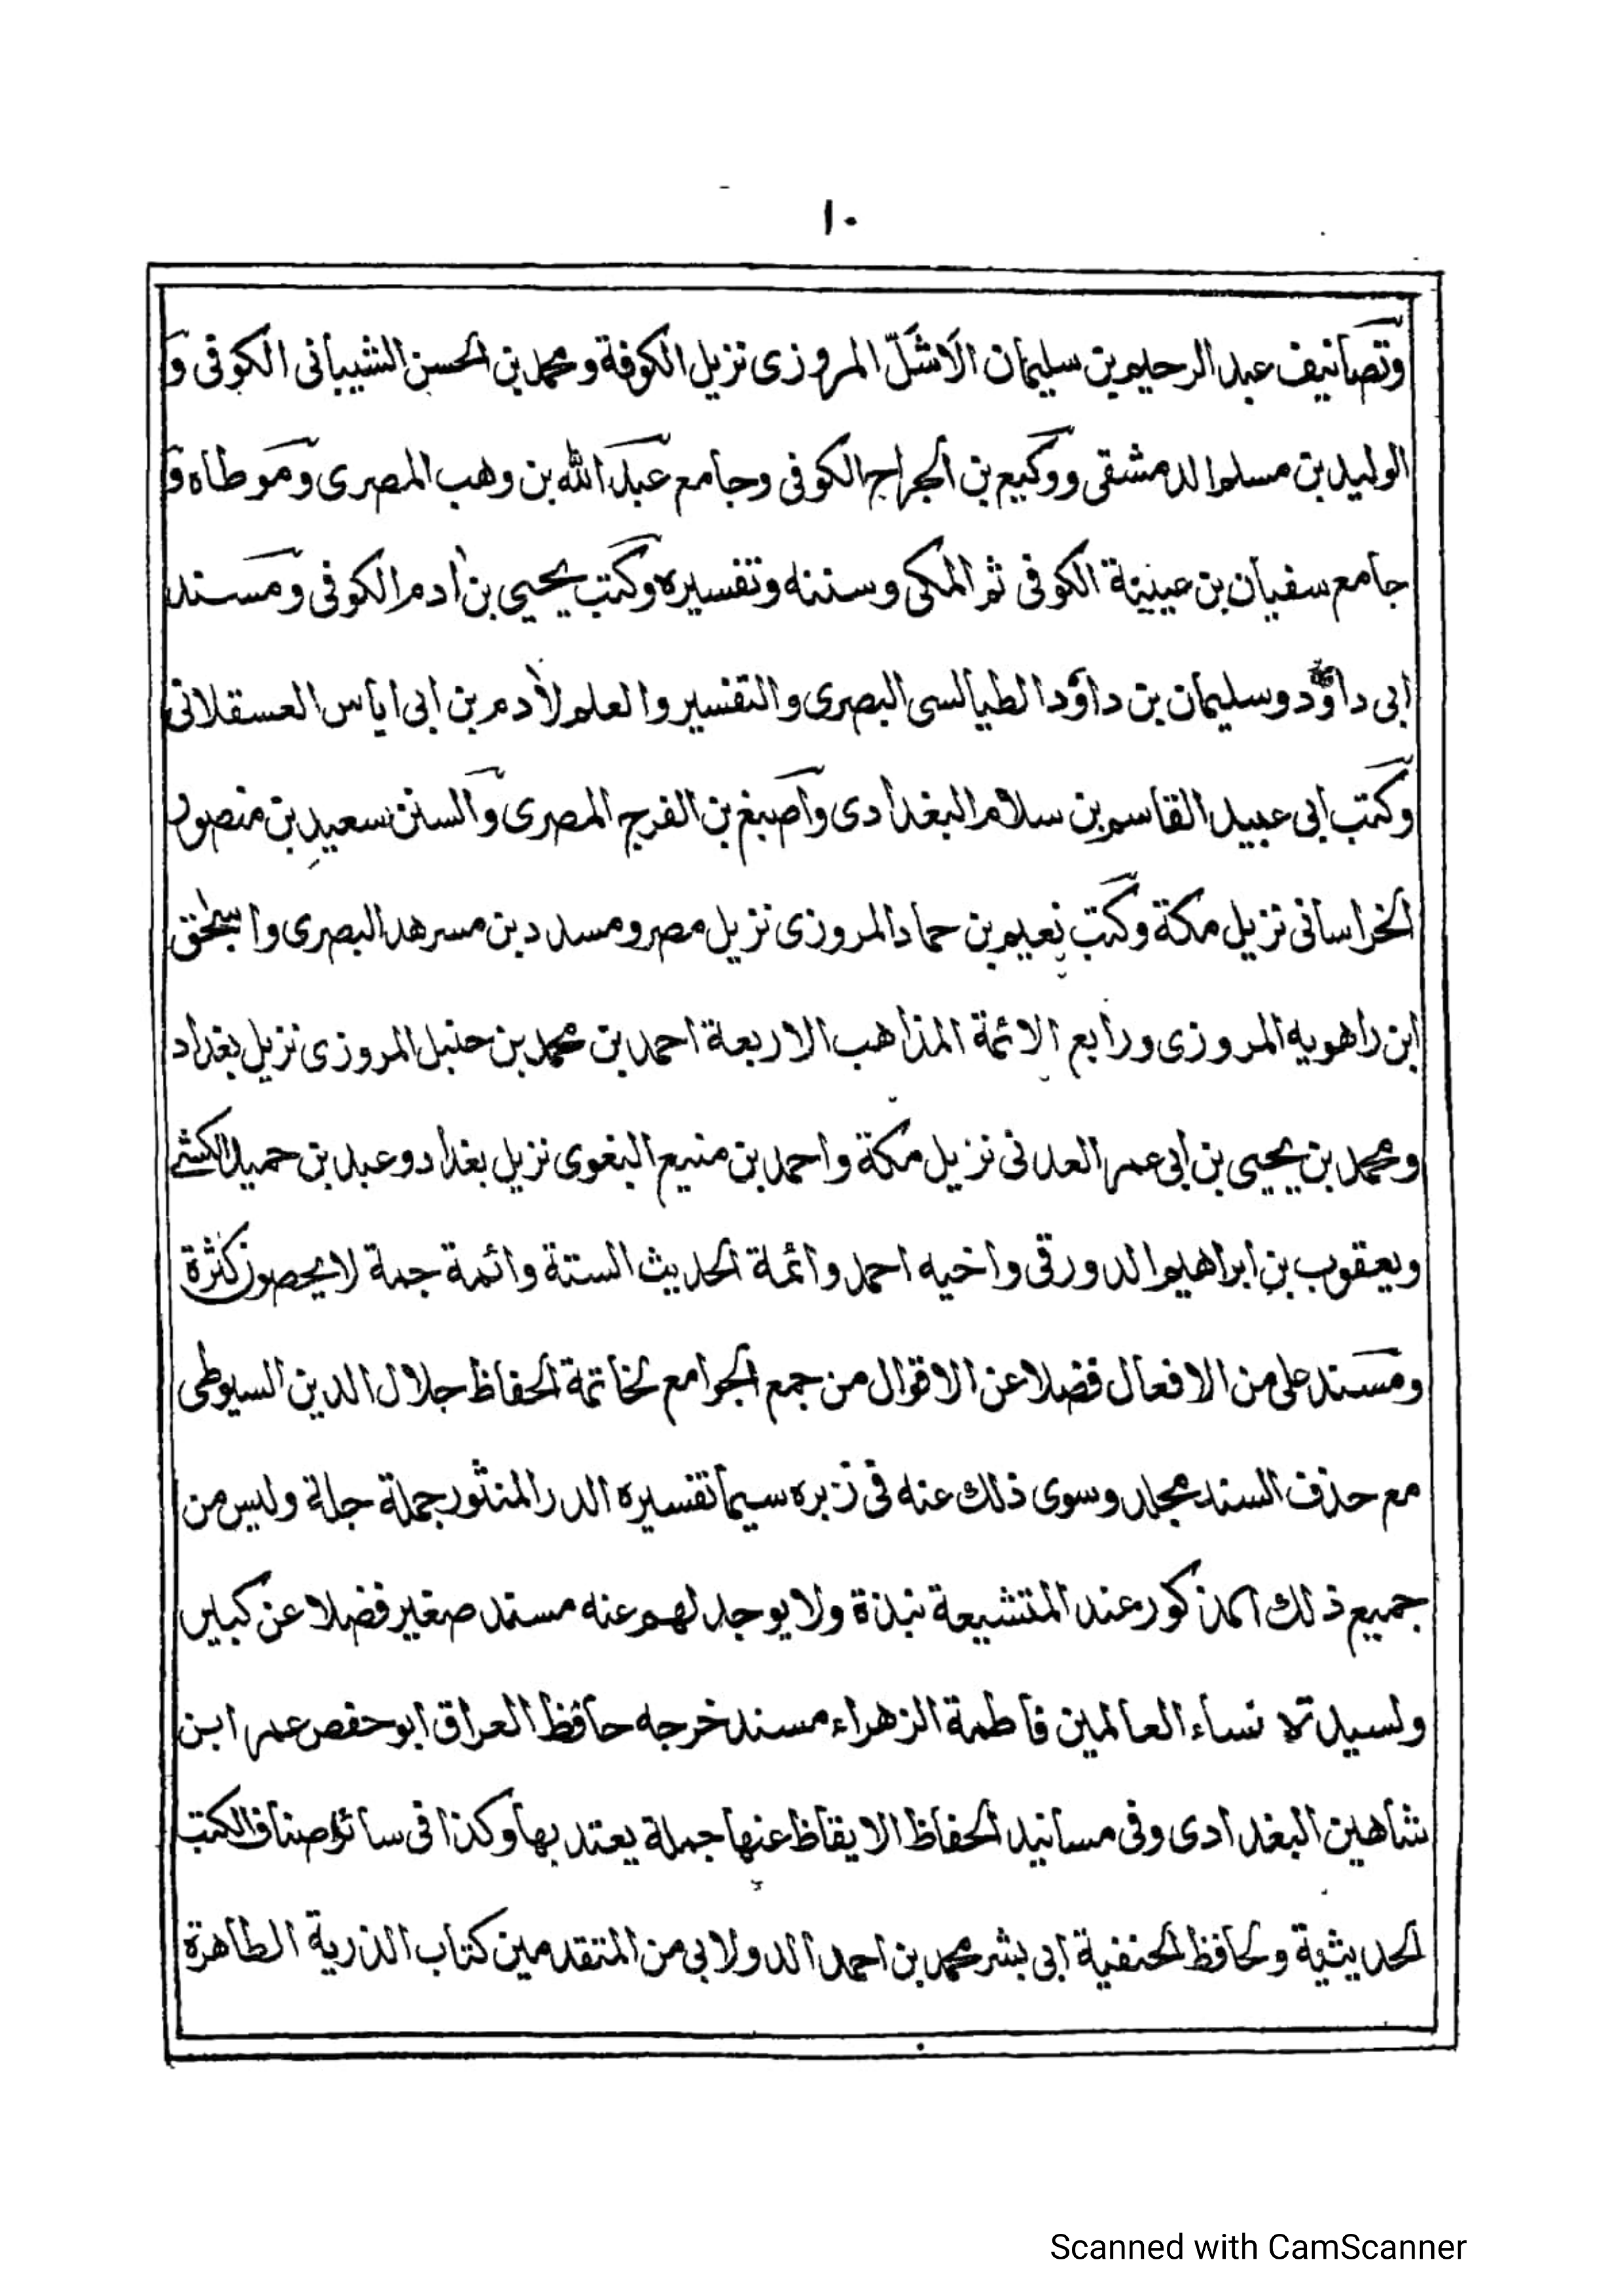 ١٠
وتصانيف عبد الرحيم بن سليمان الاشلّ المروزى نزيل الكوفة ومحمد بن الحسن الشيبانى الكوفى و
الوليد بن مسلم الدمشقى ووكيع بن الجراح الكوفى وجامع عبد الله بن وهب المصرى وموطاه و
جامع سفيان بن عيينة الكوفى ثم المكى وسننه وتفسيره وكتب يحيى بن أدم الكوفى ومسند
ابى داؤد وسليمان بن داؤد الطيالسى البصرى والتفسير والعلم لأدم بن ابى اياس العسقلانى
وكتب ابى عبيد القاسم بن سلام البغدادى واصبغ بن الفرج المصرى والسنن سعيد بن منصور
الخراسانى نزيل مكة وكتب نعيم بن حماد المروزى نزيل مصر ومسدد بن مسرهد البصرى واسحٰق
ابن راهويه المروزى ورابع الائمة المذاهب الاربعة احمد بن محمد بن حنبل المروزى نزيل بغداد
ومحمد بن يحيى بن ابى عمر العدنى نزيل مكة واحمد بن منيع البغوى نزيل بغداد وعبد بن حميد الكشى
ويعقوب بن ابراهيم الدورقى واخيه احمد وائمة الحديث الستة وائمة جمة لا يحصون كثرة
ومسند على من الافعال فضلا عن الاقوال من جمع الجوامع لخاتمة الحفاظ جلال الدين السيوطى
مع حذف السند مجلد وسوى ذلك عنه فى زبره سيما تفسيره الدر المنثور جملة جلة وليس من
جميع ذلك المذكور عند المتشيعة نبذة ولا يوجد لهم عنه مسند صغير فضلا عن كبير
ولسيدة نساء العالمين فاطمة الزهراء مسند خرجه حافظ العراق ابو حفص عمر ابن
شاهين البغدادى وفى مسانيد الحفاظ الايقاظ عنها جملة يعتد بها وكذا فى سائر اصناف الكتب
الحديثية ولحافظ الحنفية ابى بشر محمد بن احمد الدولابى من المتقدمين كتاب الذرية الطاهرة
Scanned with CamScanner